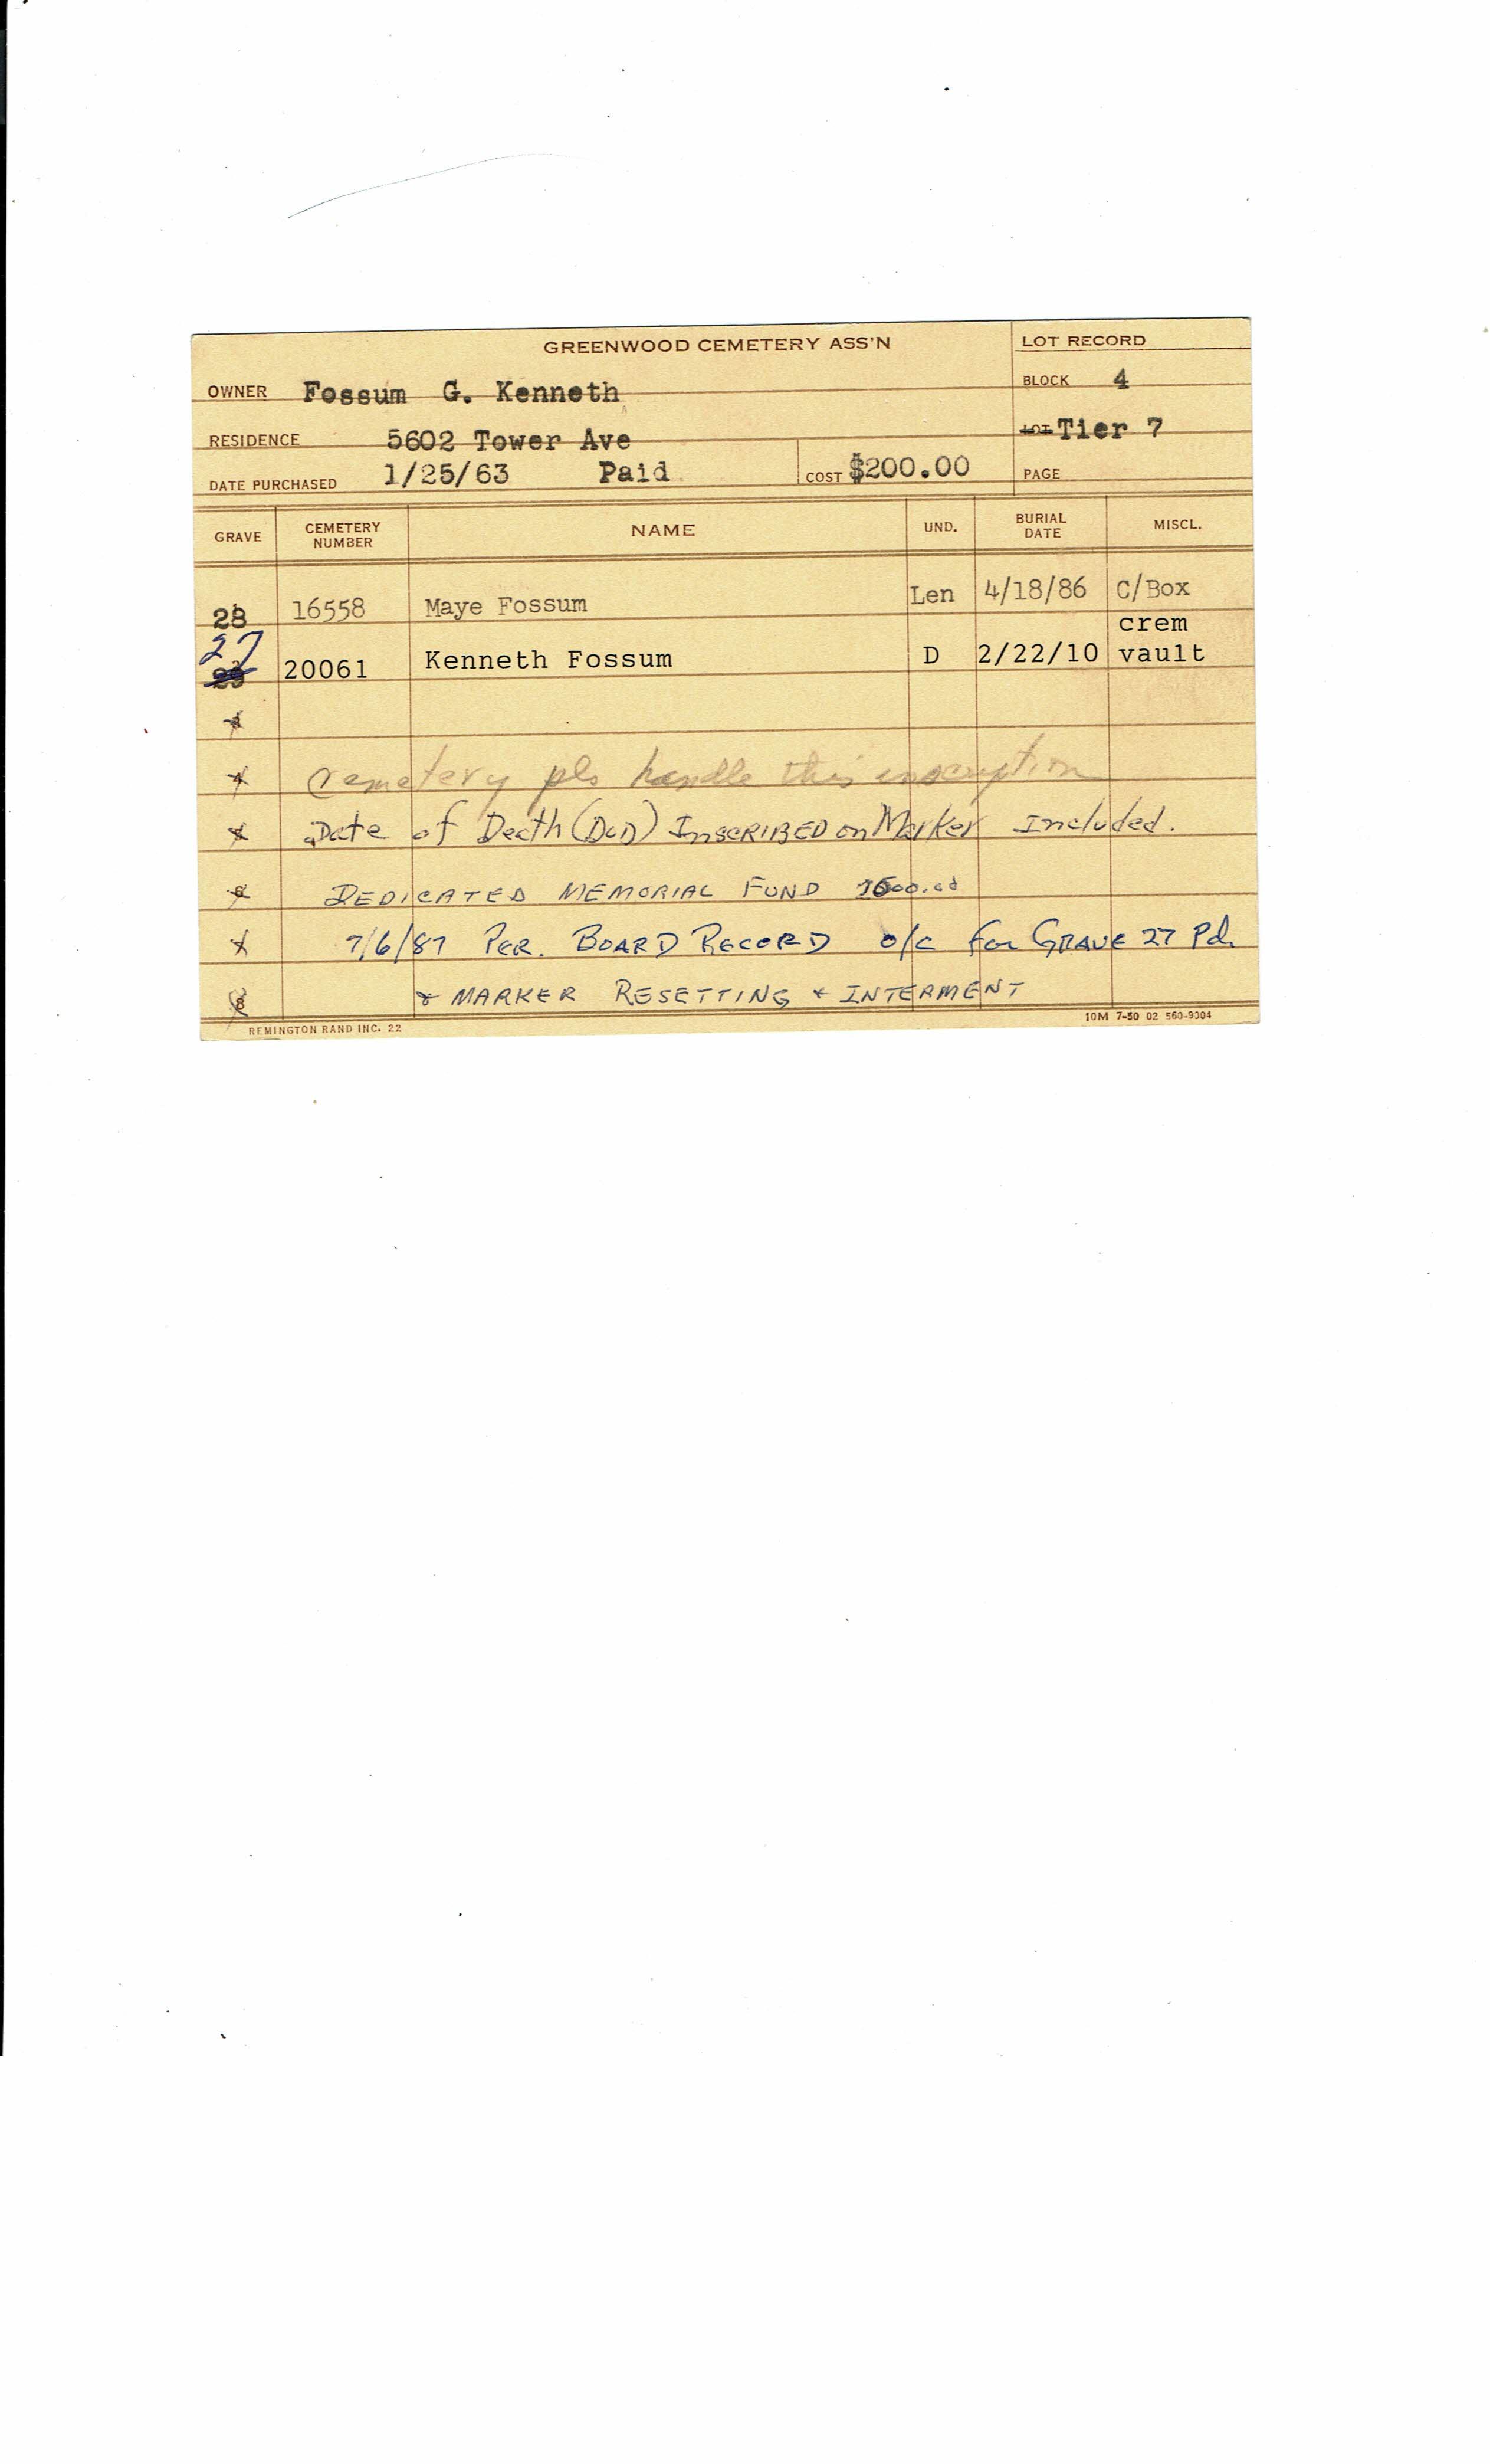 GREENWOOD CEMETERY ASS'N
LOT RECORD
OWNER Fossum G. Kenneth
BLOCK 4
RESIDENCE 5602 Tower Ave
LOT Tier 7
DATE PURCHASED 1/25/63 Paid
COST $200.00
PAGE
GRAVE CEMETERY NUMBER NAME UND. BURIAL DATE MISCL.
28 16558 Maye Fossum Len 4/18/86 C/Box
27 20061 Kenneth Fossum D 2/22/10 crem vault
Cemetery pls handle this inscription
Date of Death (DoD) INSCRIBED on Marker Included.
DEDICATED MEMORIAL FUND
7/6/87 PER. BOARD RECORD o/c for GRAVE 27 Pd.
+ MARKER RESETTING + INTERMENT
REMINGTON RAND INC. 22
10M 7-50 02 560-9004